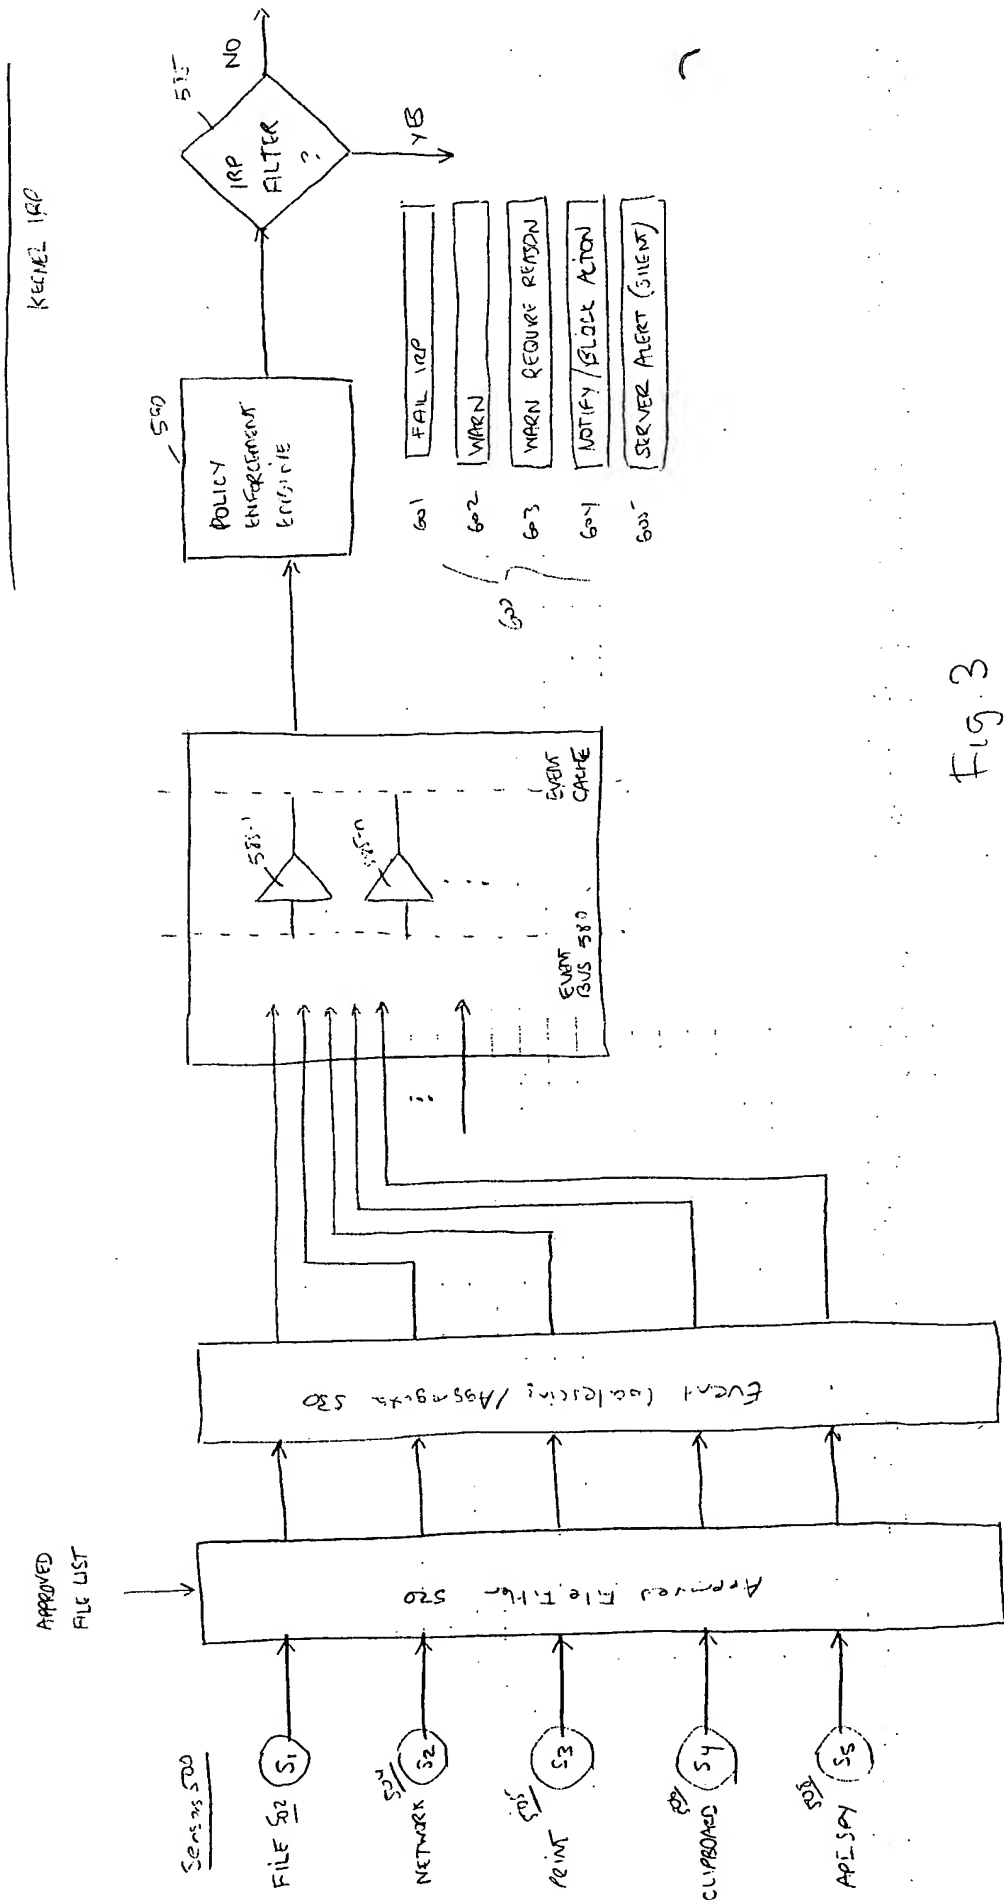 KERNEL IRP
Sensors 500
FILE 502
S1
NETWORK 504
S2
PRINT 505
S3
CLIPBOARD
S4
API SPY 508
S5
APPROVED
FILE LIST
Approved File Filter
520
Event Coalescing/Aggregate 530
EVENT
BUS 580
585-1
585-n
EVENT
CACHE
POLICY
ENFORCEMENT
ENGINE
590
IRP
FILTER
?
595
NO
YES
600
601 FAIL IRP
602 WARN
603 WARN REQUIRE REASON
604 NOTIFY/BLOCK ACTION
605 SERVER ALERT (SILENT)
Fig. 3